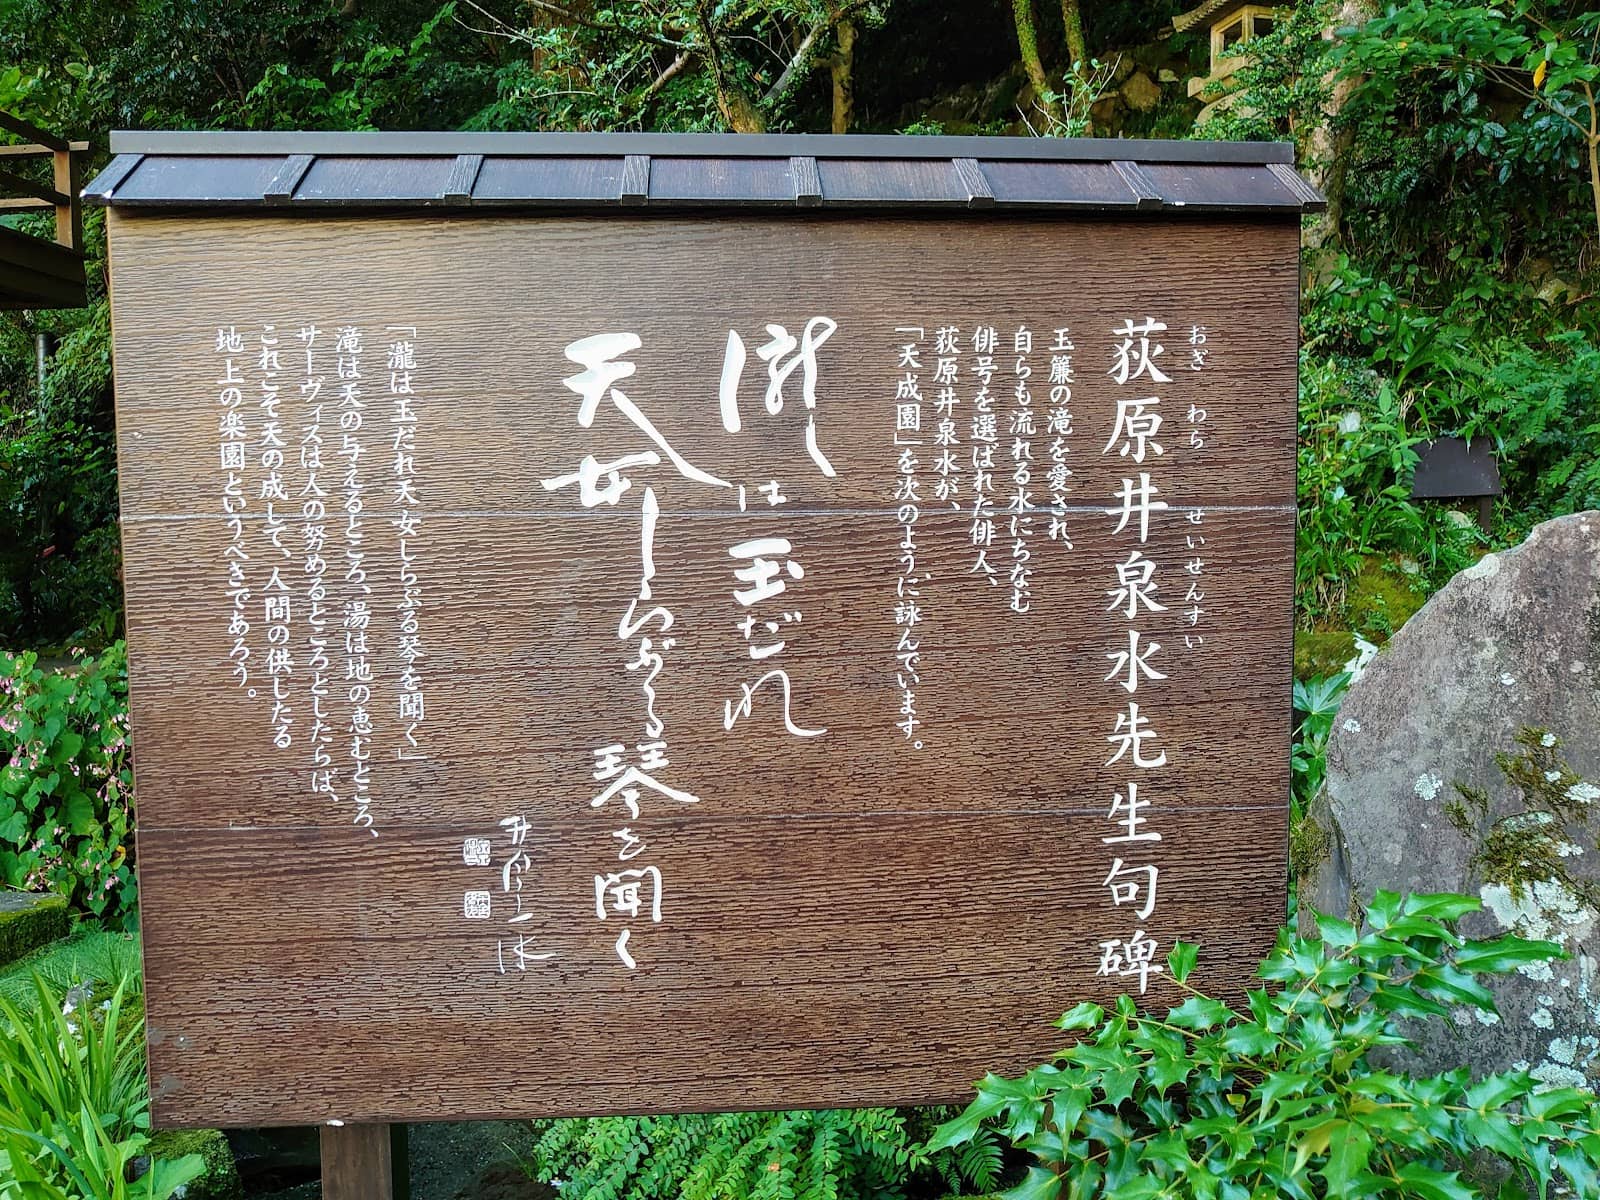 おぎ わら せいせんすい
荻原井泉水先生句碑
玉簾の滝を愛され、
自らも流れる水にちなむ
俳号を選ばれた俳人、
荻原井泉水が、
「天成園」を次のように詠んでいます。
瀧は玉だれ
天女しらぶる琴を聞く
井泉水
「瀧は玉だれ天女しらぶる琴を聞く」
滝は天の与えるところ、湯は地の恵むところ、
サーヴィスは人の努めるところとしたらば、
これこそ天の成して、人間の供したる
地上の楽園というべきであろう。